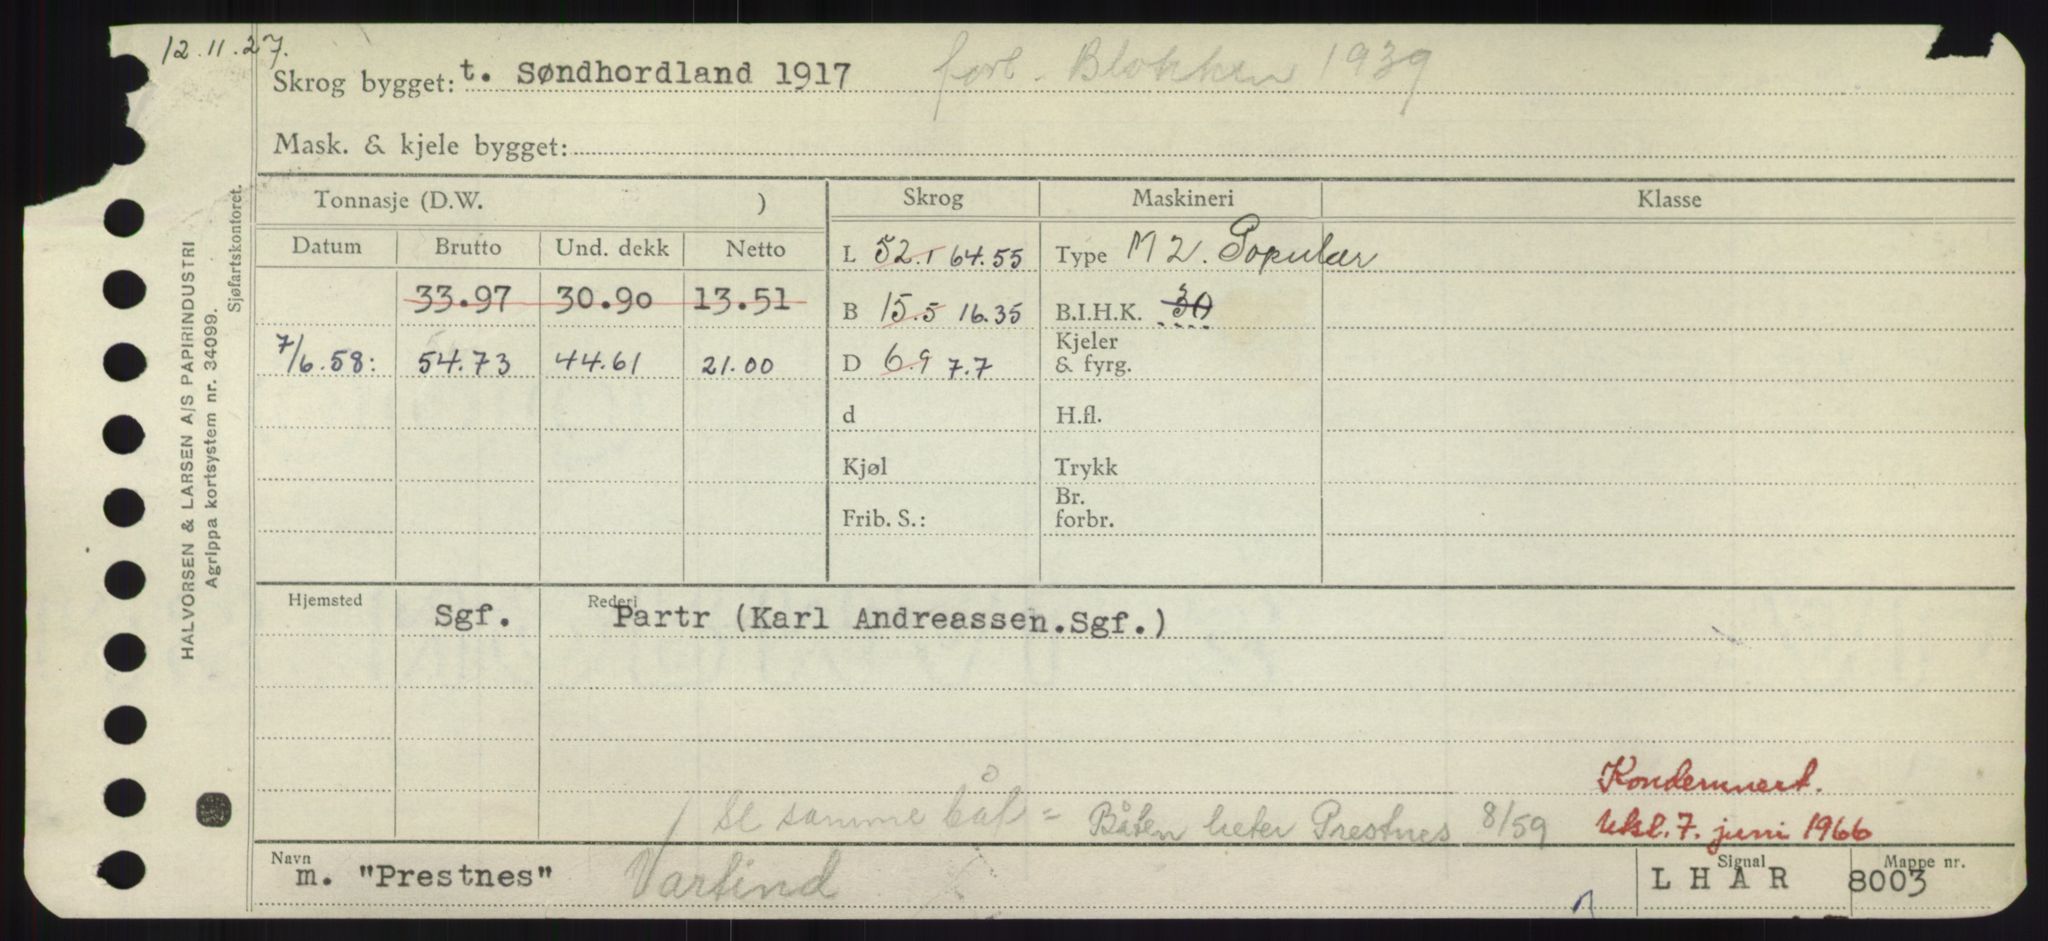 12.11.27.
Skrog bygget: t. Søndhordland 1917 forl. Blokken 1939
Mask. & kjele bygget:
Tonnasje (D.W. ) Skrog Maskineri Klasse
Datum Brutto Und. dekk Netto
L 52.1 64.55 Type M 2. Populær
33.97 30.90 13.51
B 15.5 16.35 B.I.H.K. 30
7/6.58: 54.73 44.61 21.00
D 6.9 7.7 Kjeler & fyrg.
d H.fl.
Kjøl Trykk
Frib. S.: Br. forbr.
Hjemsted Rederi
Sgf. Partr (Karl Andreassen.Sgf.)
Kondemnert.
se samme båt = Båten heter Prestnes 8/59 Uksl. 7. juni 1966
Navn Signal Mappe nr.
m. "Prestnes" Vartind L H A R 8003
HALVORSEN & LARSEN A/S PAPIRINDUSTRI
Agrippa kortsystem nr. 34099.
Sjøfartskontoret.